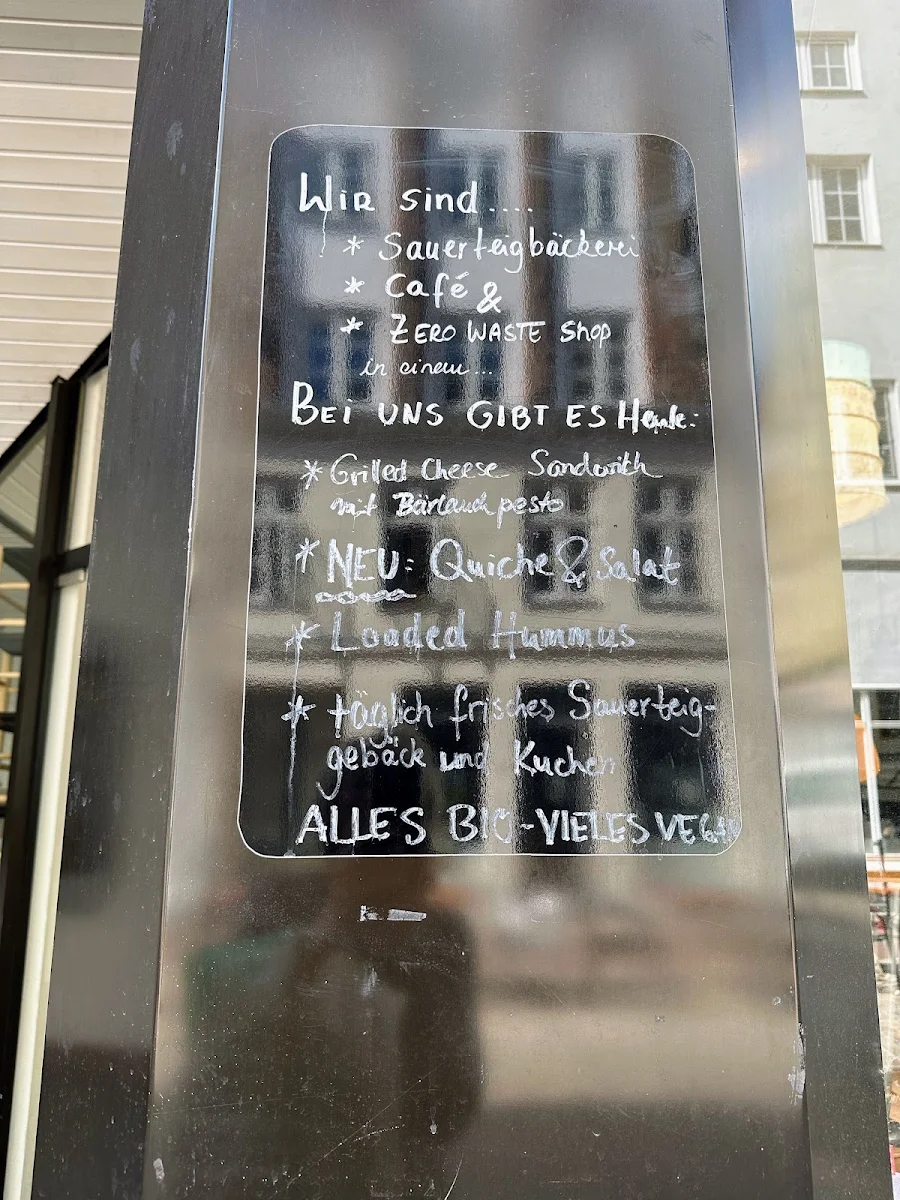 Wir sind....
* Sauerteigbäckerei
* Café &
* ZERO WASTE Shop
in einem...
BEI UNS GIBT ES Heute:
* Grilled Cheese Sandwich
mit Bärlauchpesto
* NEU: Quiche & Salat
* Loaded Hummus
* täglich frisches Sauerteig-
gebäck und Kuchen
ALLES BIO-VIELES VEGAN